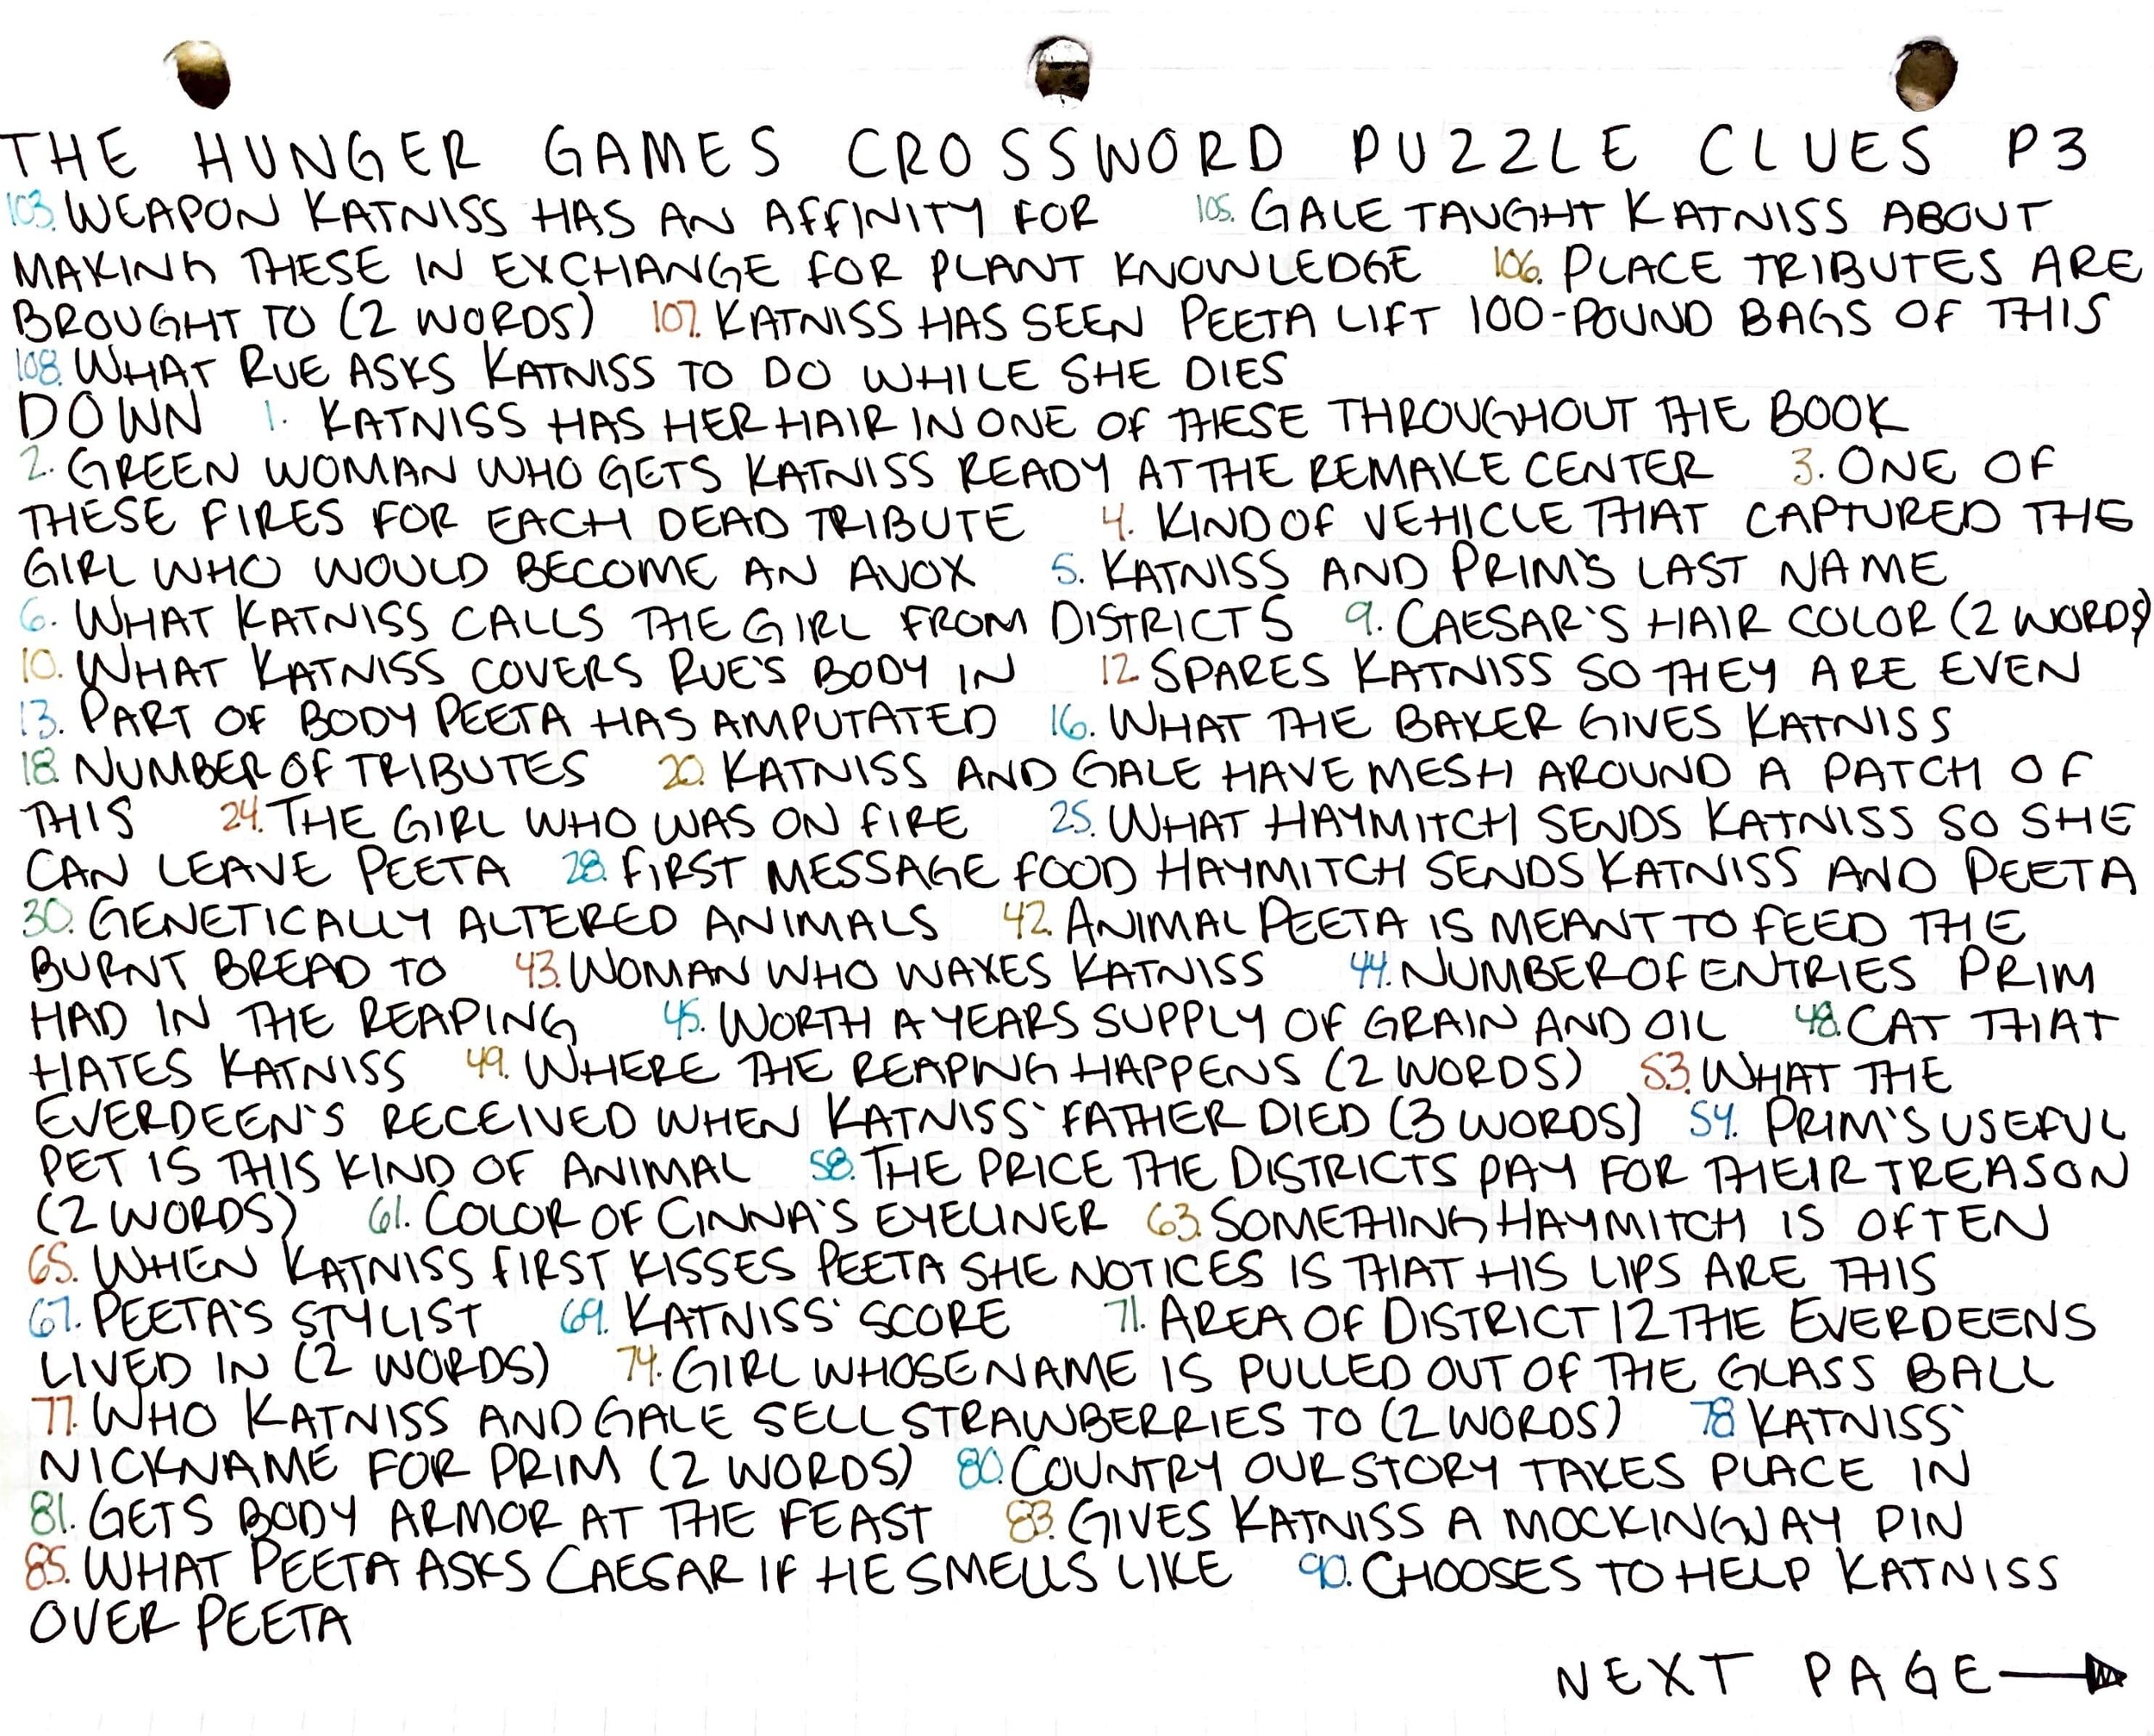 THE HUNGER GAMES CROSSWORD PUZZLE CLUES P3
103. WEAPON KATNISS HAS AN AFFINITY FOR 105. GALE TAUGHT KATNISS ABOUT
MAKING THESE IN EXCHANGE FOR PLANT KNOWLEDGE 106. PLACE TRIBUTES ARE
BROUGHT TO (2 WORDS) 107. KATNISS HAS SEEN PEETA LIFT 100-POUND BAGS OF THIS
108. WHAT RUE ASKS KATNISS TO DO WHILE SHE DIES
DOWN 1. KATNISS HAS HER HAIR IN ONE OF THESE THROUGHOUT THE BOOK
2. GREEN WOMAN WHO GETS KATNISS READY AT THE REMAKE CENTER 3. ONE OF
THESE FIRES FOR EACH DEAD TRIBUTE 4. KIND OF VEHICLE THAT CAPTURED THE
GIRL WHO WOULD BECOME AN AVOX 5. KATNISS AND PRIM'S LAST NAME
6. WHAT KATNISS CALLS THE GIRL FROM DISTRICT 5 9. CAESAR'S HAIR COLOR (2 WORDS)
10. WHAT KATNISS COVERS RUE'S BODY IN 12. SPARES KATNISS SO THEY ARE EVEN
13. PART OF BODY PEETA HAS AMPUTATED 16. WHAT THE BAKER GIVES KATNISS
18. NUMBER OF TRIBUTES 20. KATNISS AND GALE HAVE MESH AROUND A PATCH OF
THIS 24. THE GIRL WHO WAS ON FIRE 25. WHAT HAYMITCH SENDS KATNISS SO SHE
CAN LEAVE PEETA 28. FIRST MESSAGE FOOD HAYMITCH SENDS KATNISS AND PEETA
30. GENETICALLY ALTERED ANIMALS 42. ANIMAL PEETA IS MEANT TO FEED THE
BURNT BREAD TO 43. WOMAN WHO WAXES KATNISS 44. NUMBER OF ENTRIES PRIM
HAD IN THE REAPING 45. WORTH A YEARS SUPPLY OF GRAIN AND OIL 48. CAT THAT
HATES KATNISS 49. WHERE THE REAPING HAPPENS (2 WORDS) 53. WHAT THE
EVERDEEN'S RECEIVED WHEN KATNISS' FATHER DIED (3 WORDS) 54. PRIM'S USEFUL
PET IS THIS KIND OF ANIMAL 58. THE PRICE THE DISTRICTS PAY FOR THEIR TREASON
(2 WORDS) 61. COLOR OF CINNA'S EYELINER 63. SOMETHING HAYMITCH IS OFTEN
65. WHEN KATNISS FIRST KISSES PEETA SHE NOTICES IS THAT HIS LIPS ARE THIS
67. PEETA'S STYLIST 69. KATNISS' SCORE 71. AREA OF DISTRICT 12 THE EVERDEENS
LIVED IN (2 WORDS) 74. GIRL WHOSE NAME IS PULLED OUT OF THE GLASS BALL
77. WHO KATNISS AND GALE SELL STRAWBERRIES TO (2 WORDS) 78. KATNISS'
NICKNAME FOR PRIM (2 WORDS) 80. COUNTRY OUR STORY TAKES PLACE IN
81. GETS BODY ARMOR AT THE FEAST 83. GIVES KATNISS A MOCKINGJAY PIN
85. WHAT PEETA ASKS CAESAR IF HE SMELLS LIKE 90. CHOOSES TO HELP KATNISS
OVER PEETA
NEXT PAGE →